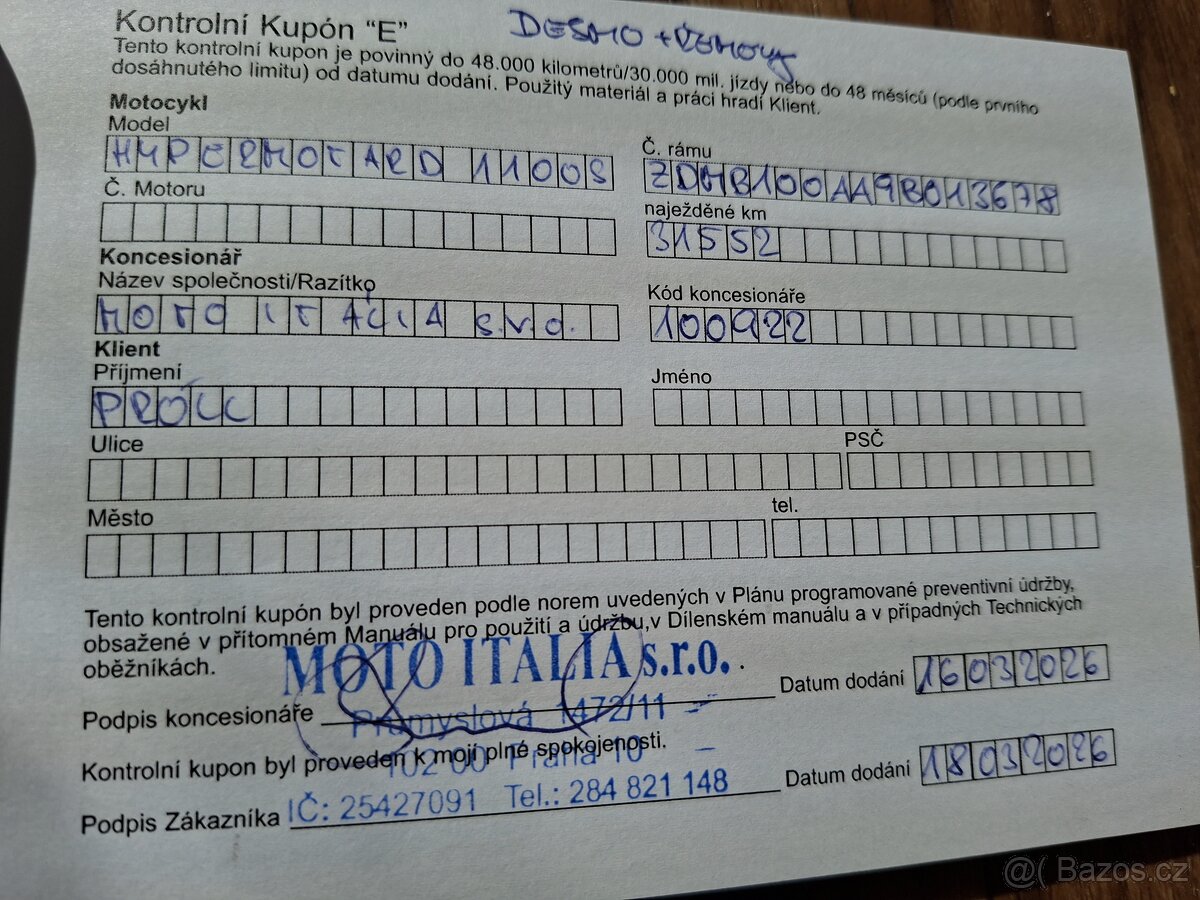 Kontrolní Kupón “E” DESMO + ŘEMENY
Tento kontrolní kupon je povinný do 48.000 kilometrů/30.000 mil. jízdy nebo do 48 měsíců (podle prvního
dosáhnutého limitu) od datumu dodání. Použitý materiál a práci hradí Klient.
Motocykl
Model
HYPERMOTARD 1100S
Č. rámu
ZDMB100AA9B013678
Č. Motoru
naježděné km
31552
Koncesionář
Název společnosti/Razítko
MOTO ITALIA s.r.o.
Kód koncesionáře
100922
Klient
Příjmení
PROLL
Jméno
Ulice
PSČ
Město
tel.
Tento kontrolní kupón byl proveden podle norem uvedených v Plánu programované preventivní údržby,
obsažené v přítomném Manuálu pro použití a údržbu,v Dílenském manuálu a v případných Technických
oběžníkách.
MOTO ITALIA s.r.o.
Podpis koncesionáře
Datum dodání 16032026
Průmyslová 1472/11
Kontrolní kupon byl proveden k mojí plné spokojenosti.
102 00 Praha 10
Datum dodání 18032026
Podpis Zákazníka
IČ: 25427091 Tel.: 284 821 148
@( Bazos.cz